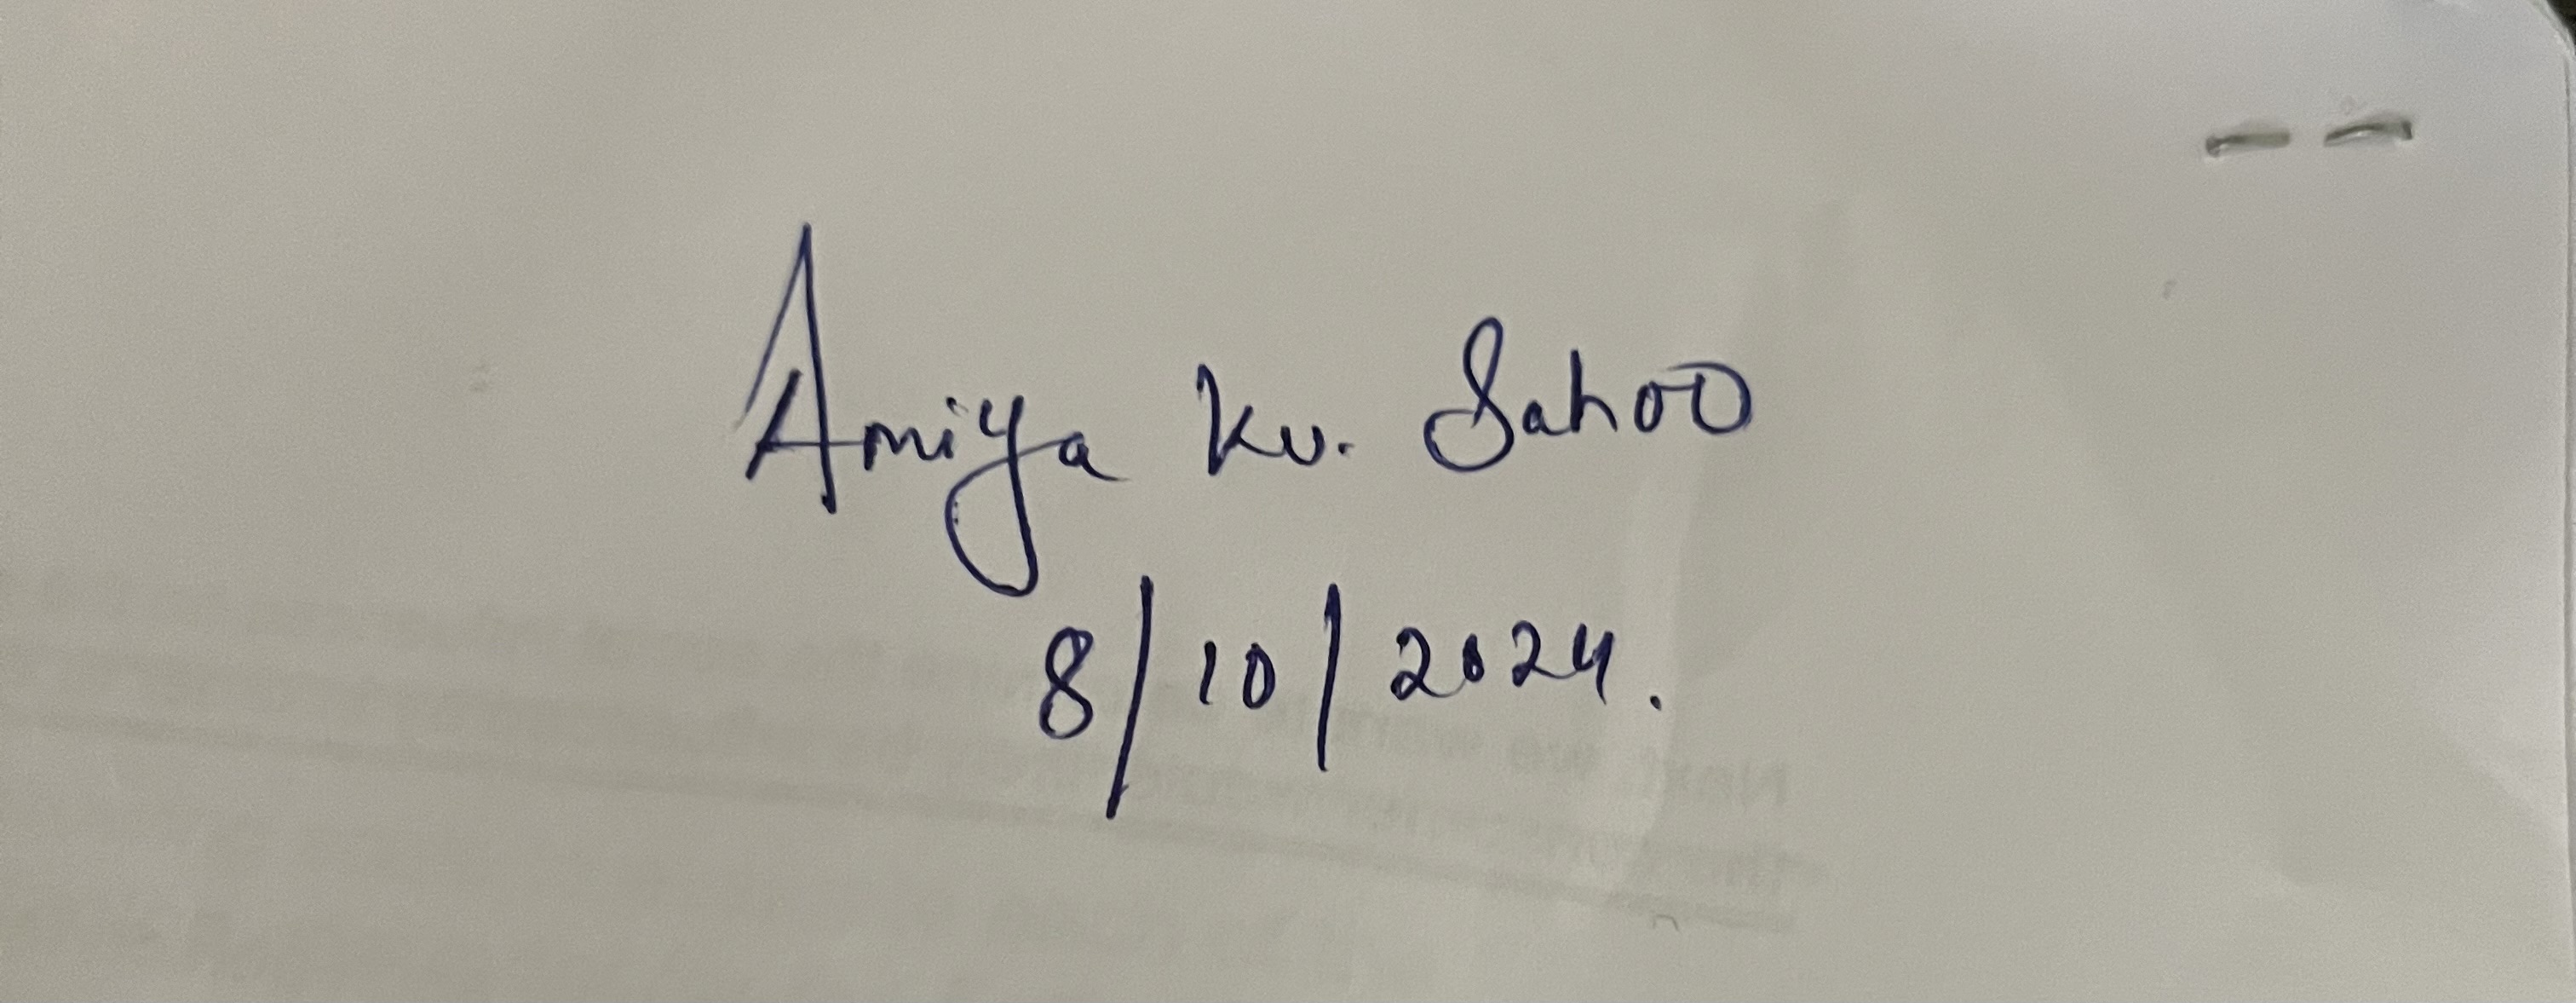 Amiya Ku. Sahoo
8/10/2024.